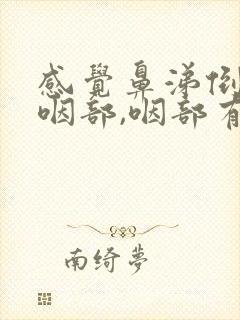 感覺鼻涕倒
咽部,咽部有
南绮夢